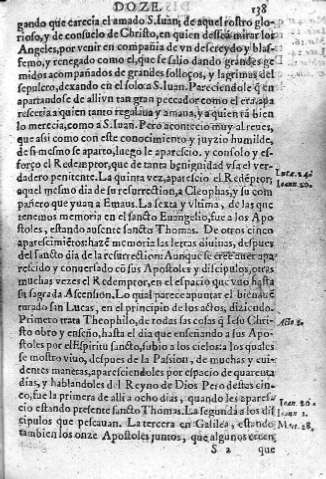 DOZE. 138
gando que carecia el amado S. Iuan, de aquel rostro glo-
rioso, y de consuelo de Christo, en quien dessea mirar los
Angeles, por venir en compañia de vn descreydo y blas-
femo, y renegado como el, que se salio dando grandes ge-
midos acompañados de grandes solloços, y lagrimas del
sepulcro, dexando en el solo a S. Iuan. Pareciendole q̃ en
apartandose de alli vn tan gran peccador como el era, apa
resceria a quien tanto regalaua y amaua, y a quien tã bien
lo merecia, como a S. Iuan. Pero acontecio muy al reues,
que assi como con este conocimiento y juyzio humilde,
de si mesmo se aparto, luego le aparecio, y consolo y es-
forço el Redemptor, que de tanta benignidad vsa el ver-
dadero penitente. La quinta vez, aparescio el Redẽptor,
aquel mesmo dia de su resurrection, a Cleophas, y su com
pañero que yuan a Emaus. La sexta y vltima, de las que
tenemos memoria en el sancto Euangelio, fue a los Apo
stoles, estando ausente sancto Thomas. De otros cinco
aparescimiẽtos hazẽ memoria las letras diuinas, despues
del sancto dia de la resurrection: Aunque se cree auer apa
rescido y conuersado cõ sus Apostoles y discipulos, otras
muchas vezes el Redemptor, en el espacio que vuo hasta
su sagrada Ascension. Lo qual parece apuntar el bienauẽ
turado san Lucas, en el principio de los actos, diziẽdo.
Primero trata Theophilo, de todas las cosas q̃ Iesu Chri-
sto obro y enseño, hasta el dia que enseñando a sus Apo-
stoles por el Espiritu sancto, subio a los cielos: a los quales
se mostro viuo, despues de la Passion, de muchas y cui-
dentes maneras, apareciendoles por espacio de quarenta
dias, y hablandoles del Reyno de Dios Pero destas cin-
co, fue la primera de alli a ocho dias, quando les apares-
cio estando presente sancto Thomas. La segunda a los dis
cipulos que pescauan. La tercera en Galilea, estando
tambien los onze Apostoles juntos, que algunos creen
S 2 que
Luc. 24.
Ioann. 20.
Acto
Ioan. 20.
Ioann
Mat. 28,